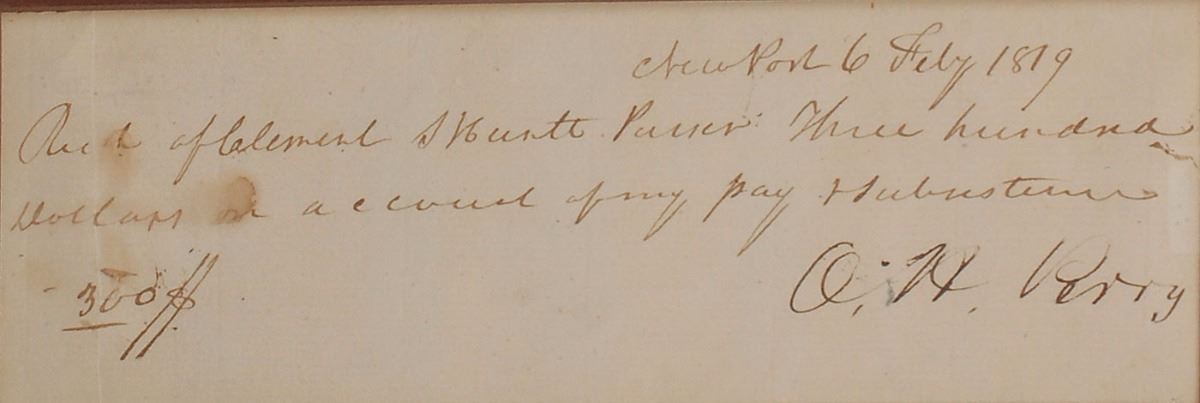 NewPort 6 Feby 1819
Recd of Clement S Huntt Purser Three hundred
Dollars on account of my pay & subsistence
300 $
O. H. Perry